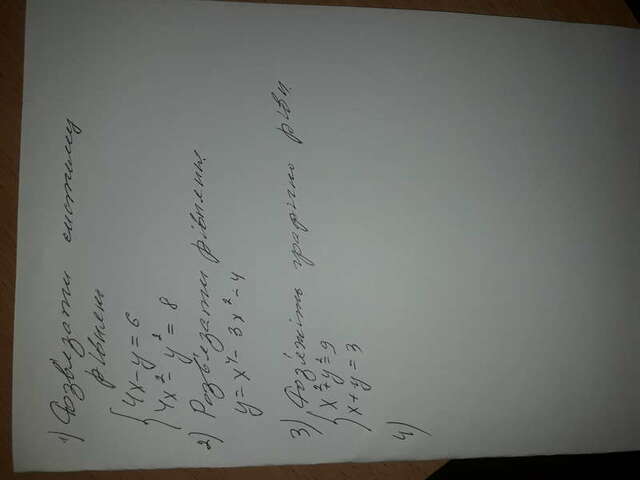 1) Розв'язати систему
рівнянь
4x - y = 6
4x² - y² = 8
2) Розв'язати рівняння
y = x⁴ - 3x² - 4
3) Розв'яжіть графічно рівн.
x² + y² = 9
x + y = 3
4)